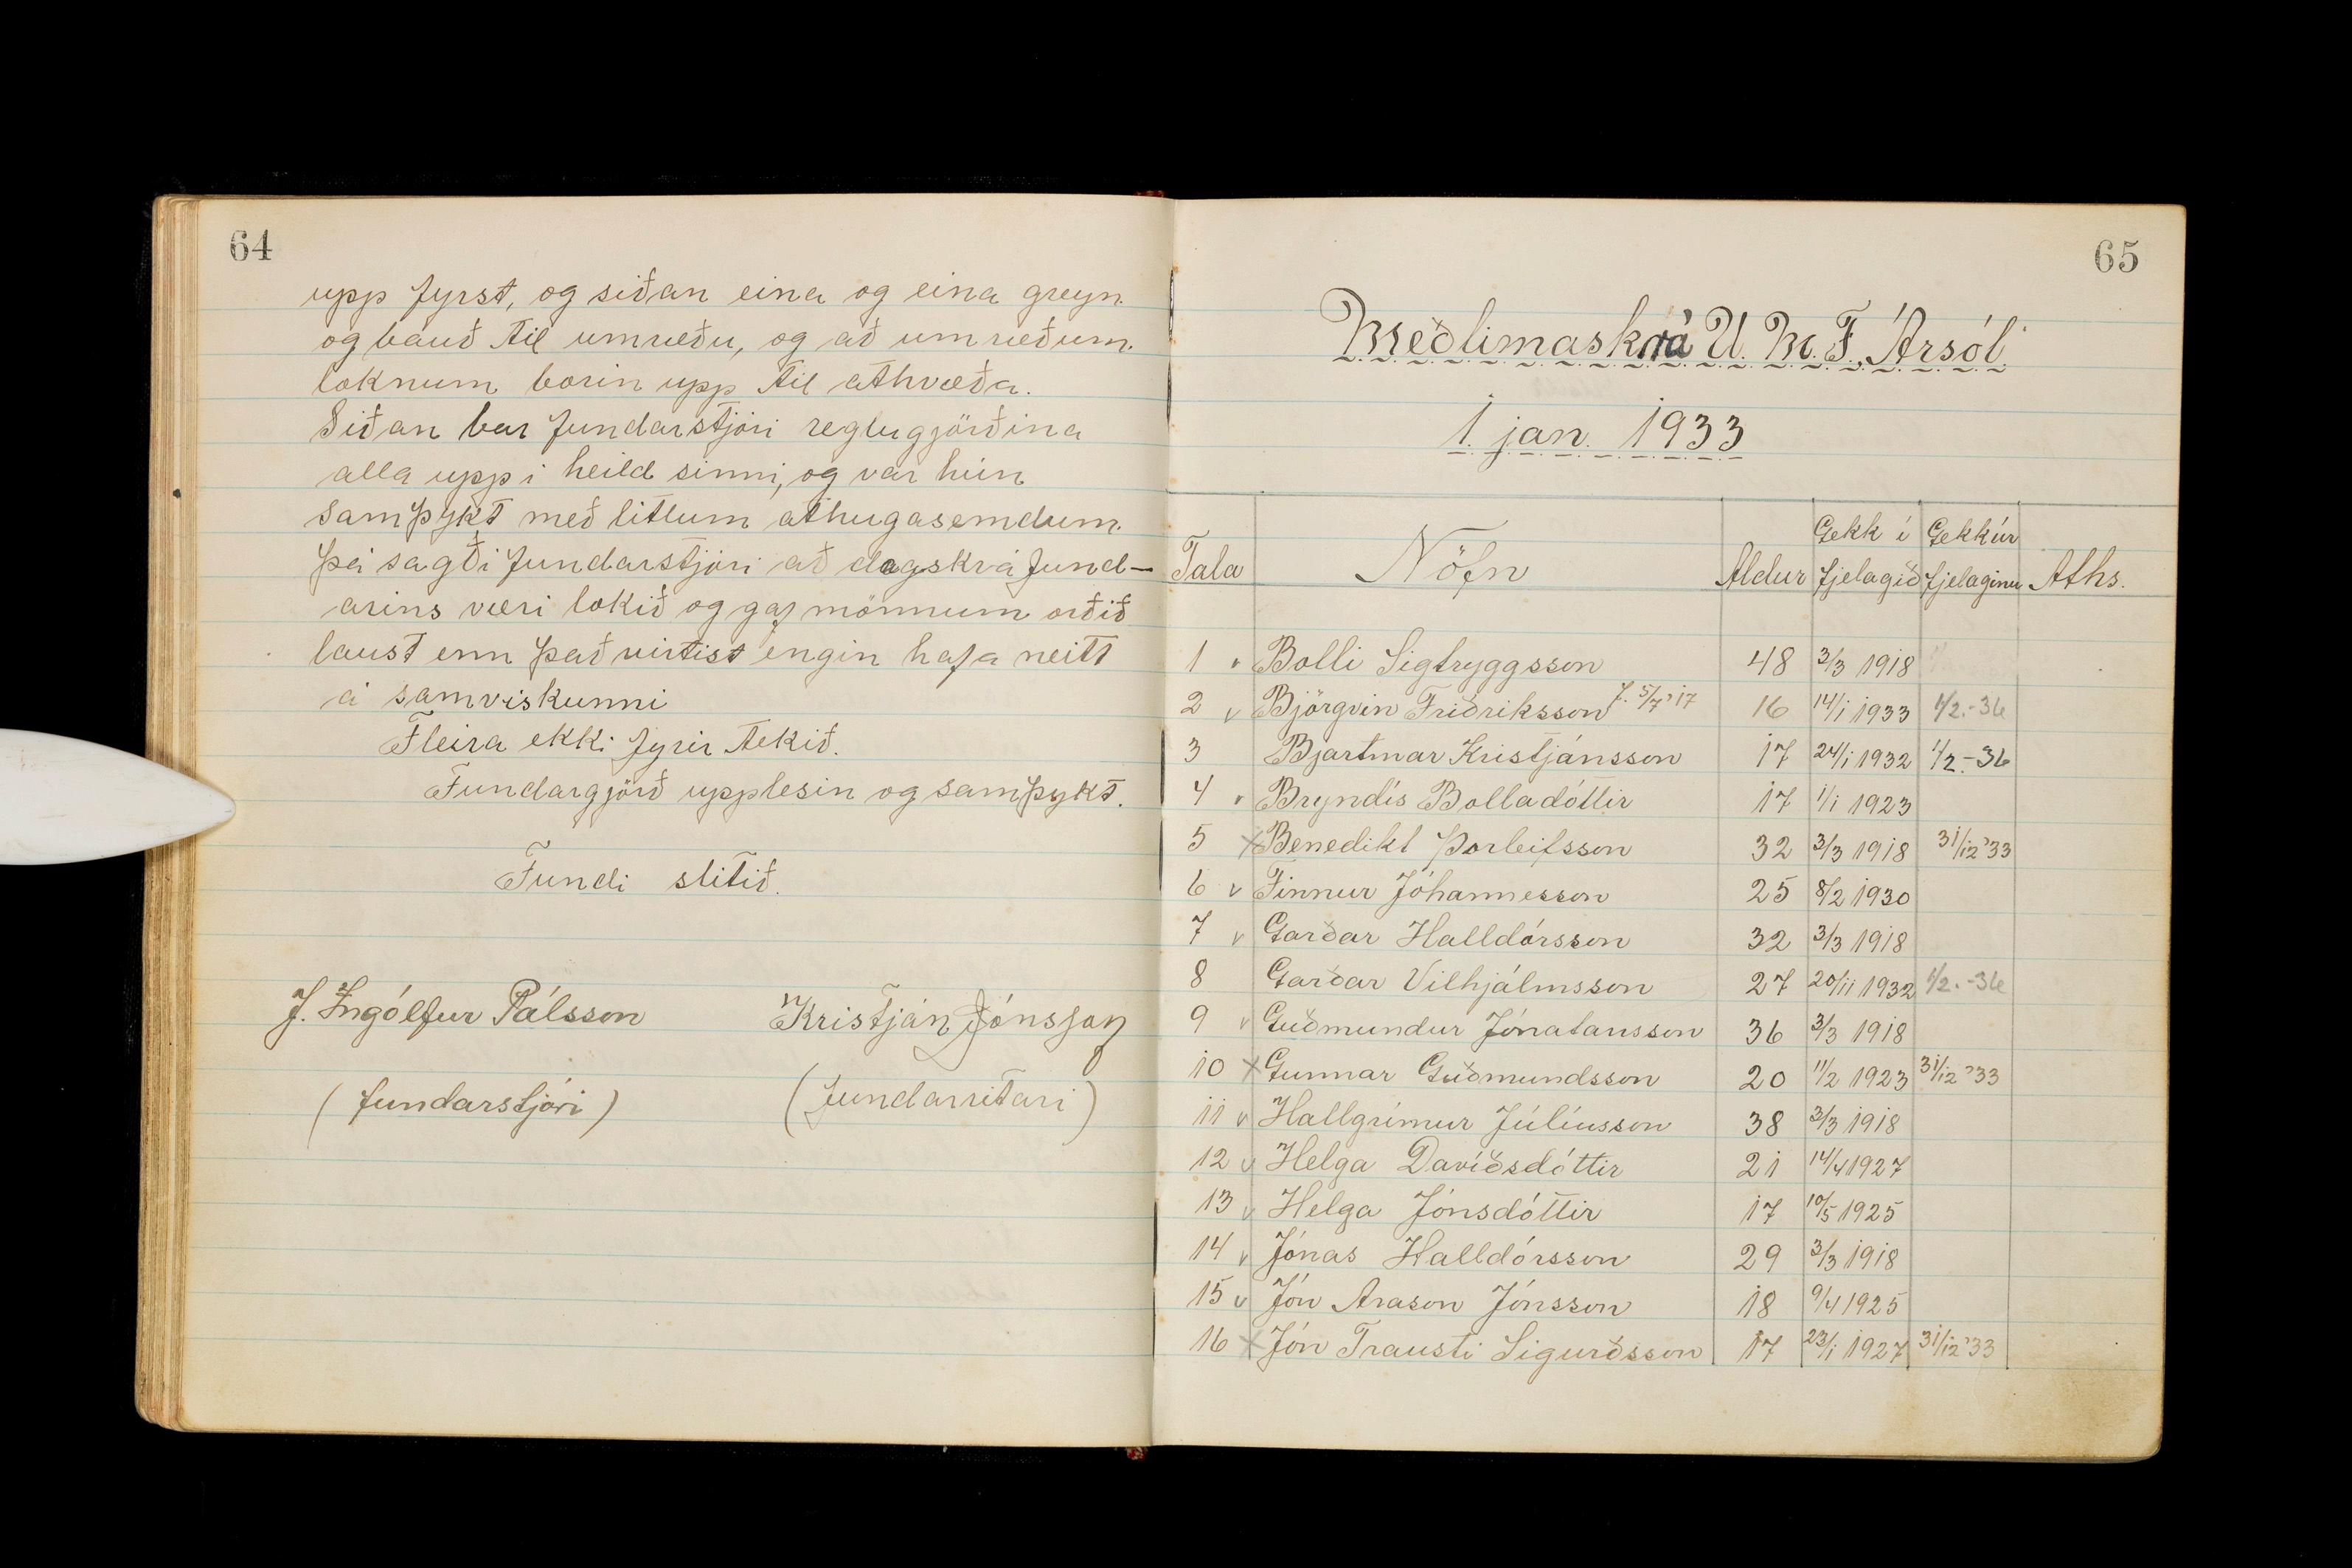 64
upp fyrst, og siðan eina og eina greyn
og bauð til umræðu, og að umræðum
loknum borin upp til athvæða.
Siðan bar fundarstjóri reglugjörðina
alla upp i heild sinni, og var hún
samþykt með litlum athugasemdum.
þá sagði fundarstjóri að dagskrá fund-
arins væri lokið og gaf mönnum orðið
laust enn það virtist engin hafa neitt
á samviskunni
Fleira ekki fyrir tekið.
Fundargjörð upplesin og samþykt.
Fundi slitið.
J. Ingólfur Pálsson Kristján Jónsson
(fundarstjóri) (fundarritari)
65
Meðlimaskrá U. M. F. Ársól
1. jan. 1933
Tala Nöfn Aldur Gekk í fjelagið Gekk úr fjelaginu Aths.
1 v Bolli Sigtryggsson 48 3/3 1918
2 v Björgvin Friðriksson f. 5/7 '17 16 14/1 1933 1/2.-36
3 Bjartmar Kristjánsson 17 24/1 1932 1/2.-36
4 v Bryndís Bolladóttir 17 1/1 1923
5 x Benedikt Þorleifsson 32 3/3 1918 31/12 '33
6 v Finnur Jóhannesson 25 8/2 1930
7 v Garðar Halldórsson 32 3/3 1918
8 Garðar Vilhjálmsson 27 20/11 1932 1/2.-36
9 v Guðmundur Jónatansson 36 3/3 1918
10 x Gunnar Guðmundsson 20 11/2 1923 31/12 '33
11 v Hallgrímur Júlíusson 38 3/3 1918
12 v Helga Davíðsdóttir 21 14/4 1927
13 v Helga Jónsdóttir 17 10/5 1925
14 v Jónas Halldórsson 29 3/3 1918
15 v Jón Arason Jónsson 18 9/4 1925
16 x Jón Trausti Sigurðsson 17 23/1 1927 31/12 '33